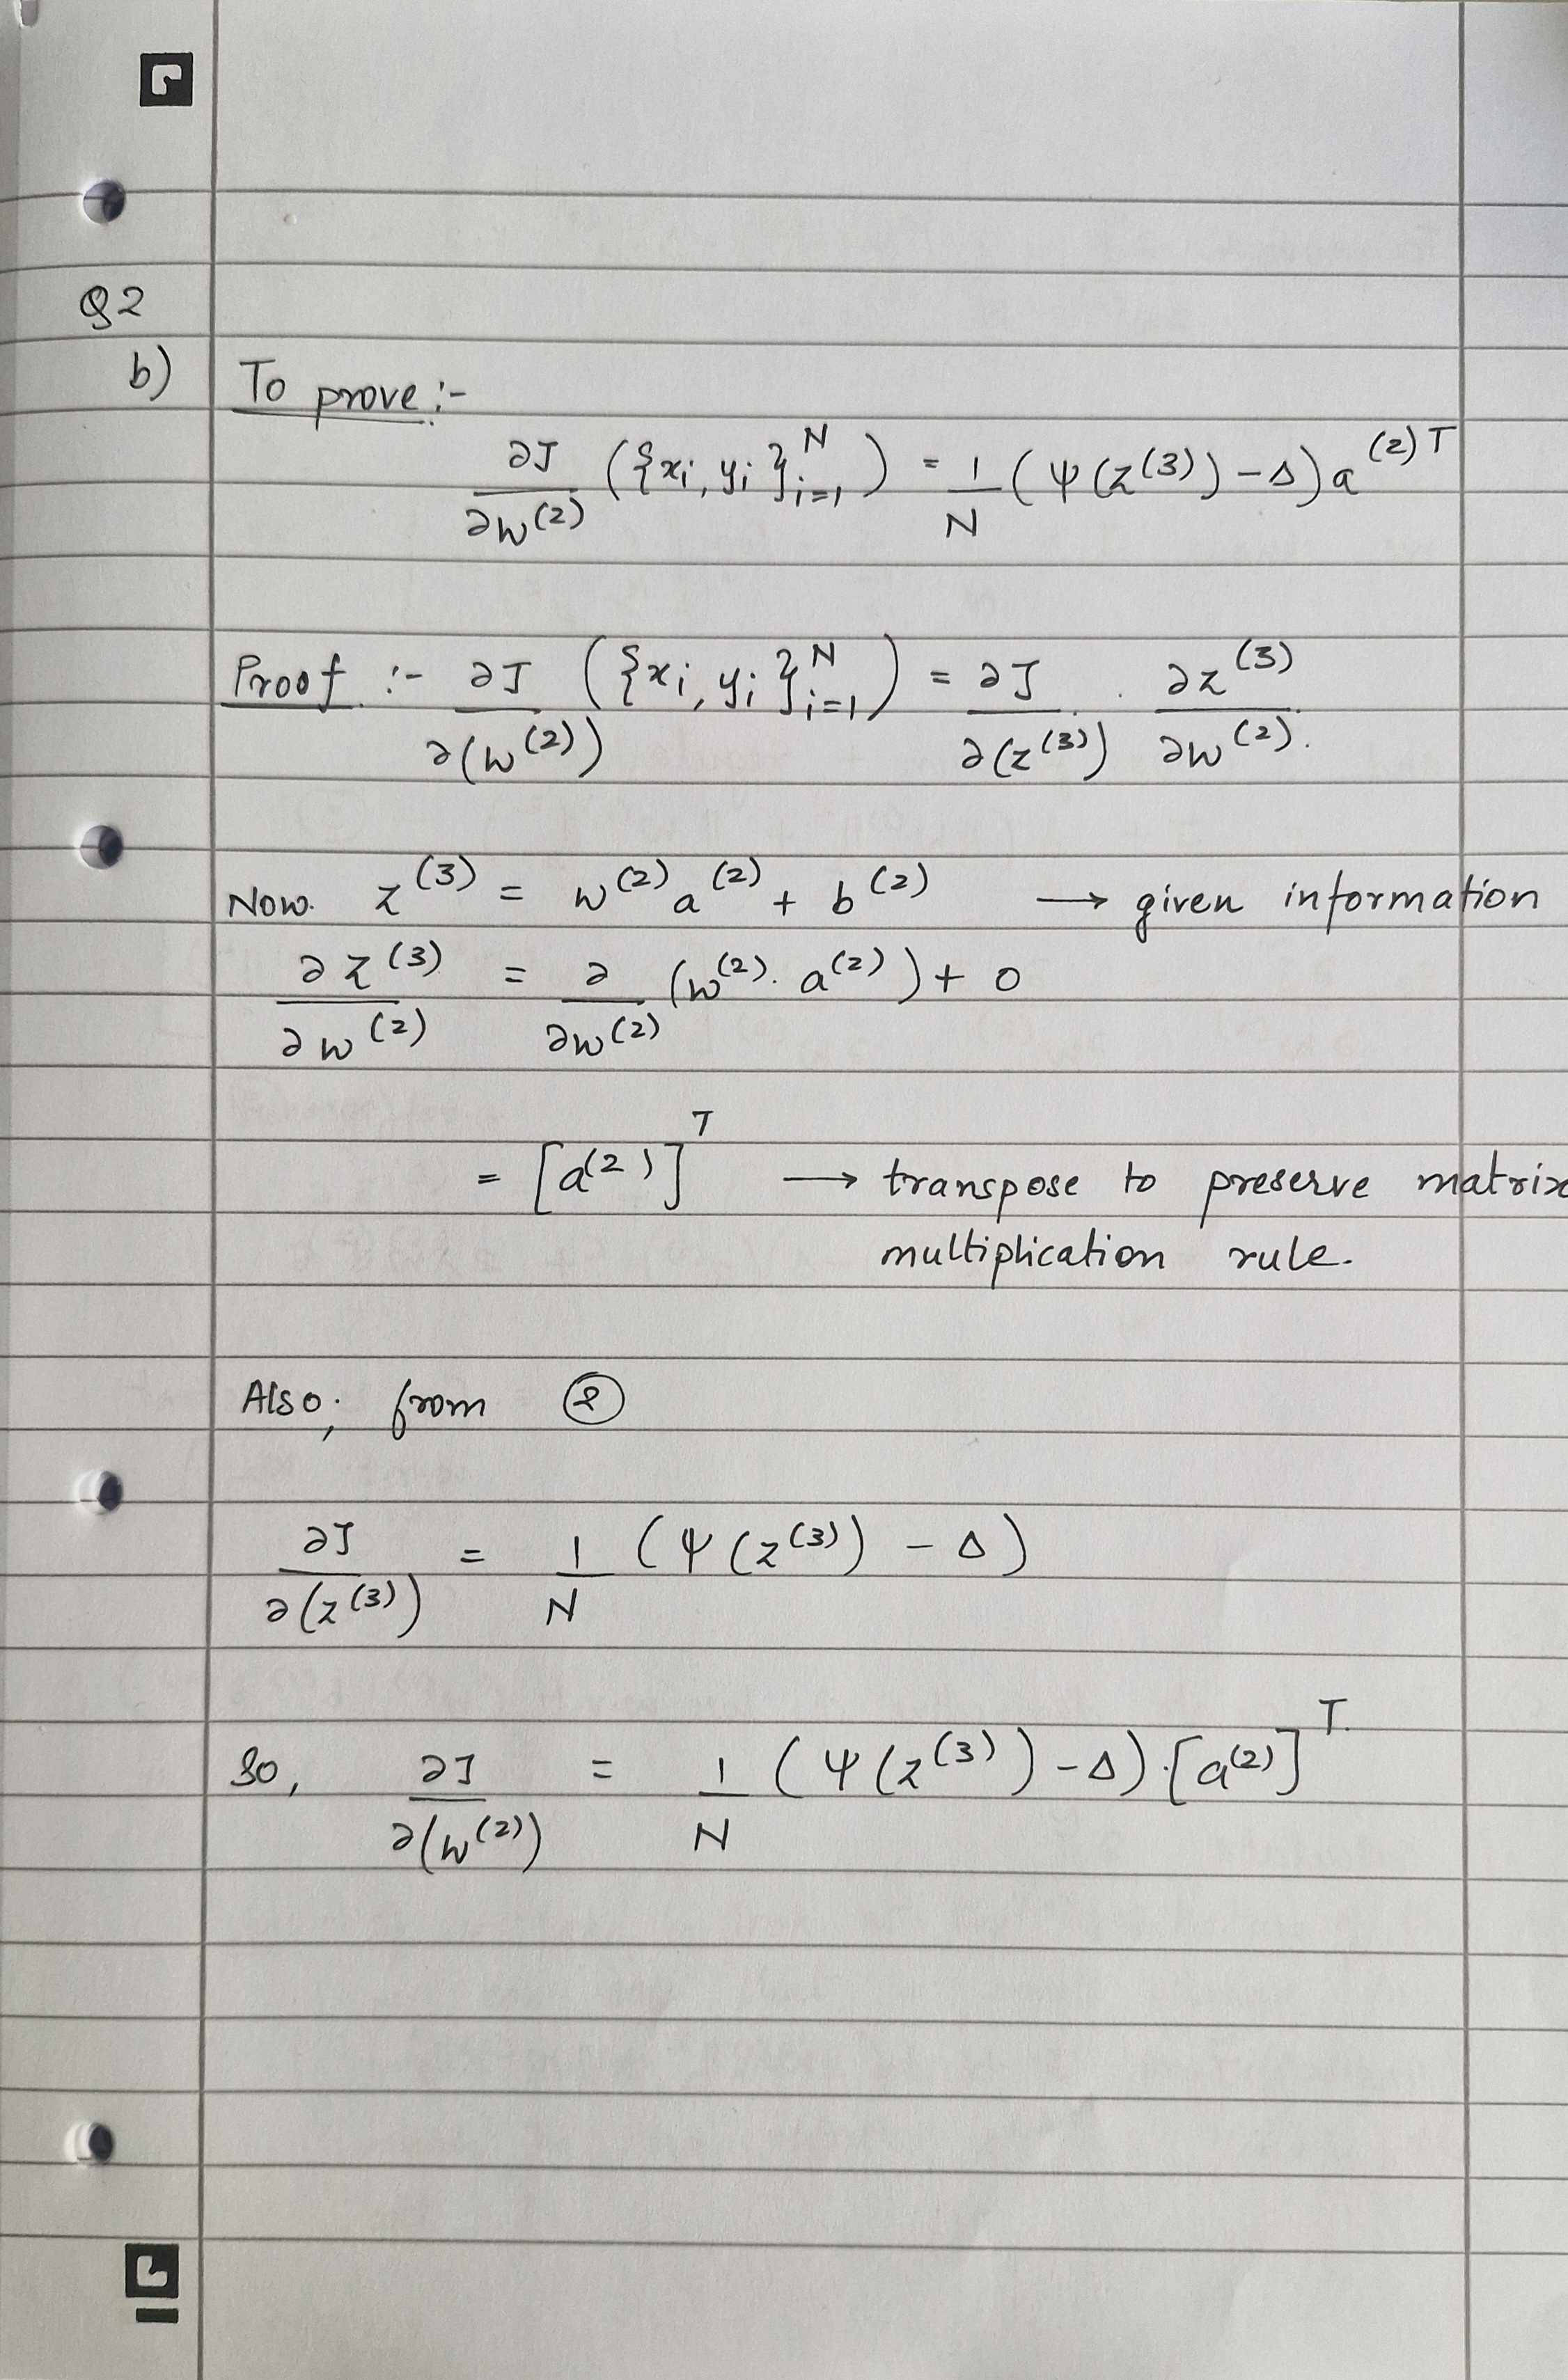 Q2
b) To prove :-
∂J/∂W^(2) ({x_i, y_i}_{i=1}^N) = 1/N (ψ(z^(3)) - Δ) a^(2)T
Proof :- ∂J/∂(W^(2)) ({x_i, y_i}_{i=1}^N) = ∂J/∂(z^(3)) · ∂z^(3)/∂W^(2).
Now. z^(3) = W^(2) a^(2) + b^(2) → given information
∂z^(3)/∂W^(2) = ∂/∂W^(2) (W^(2). a^(2)) + 0
= [a^(2)]^T → transpose to preserve matrix
multiplication rule.
Also, from ②
∂J/∂(z^(3)) = 1/N (ψ(z^(3)) - Δ)
So, ∂J/∂(W^(2)) = 1/N (ψ(z^(3)) - Δ).[a^(2)]^T.